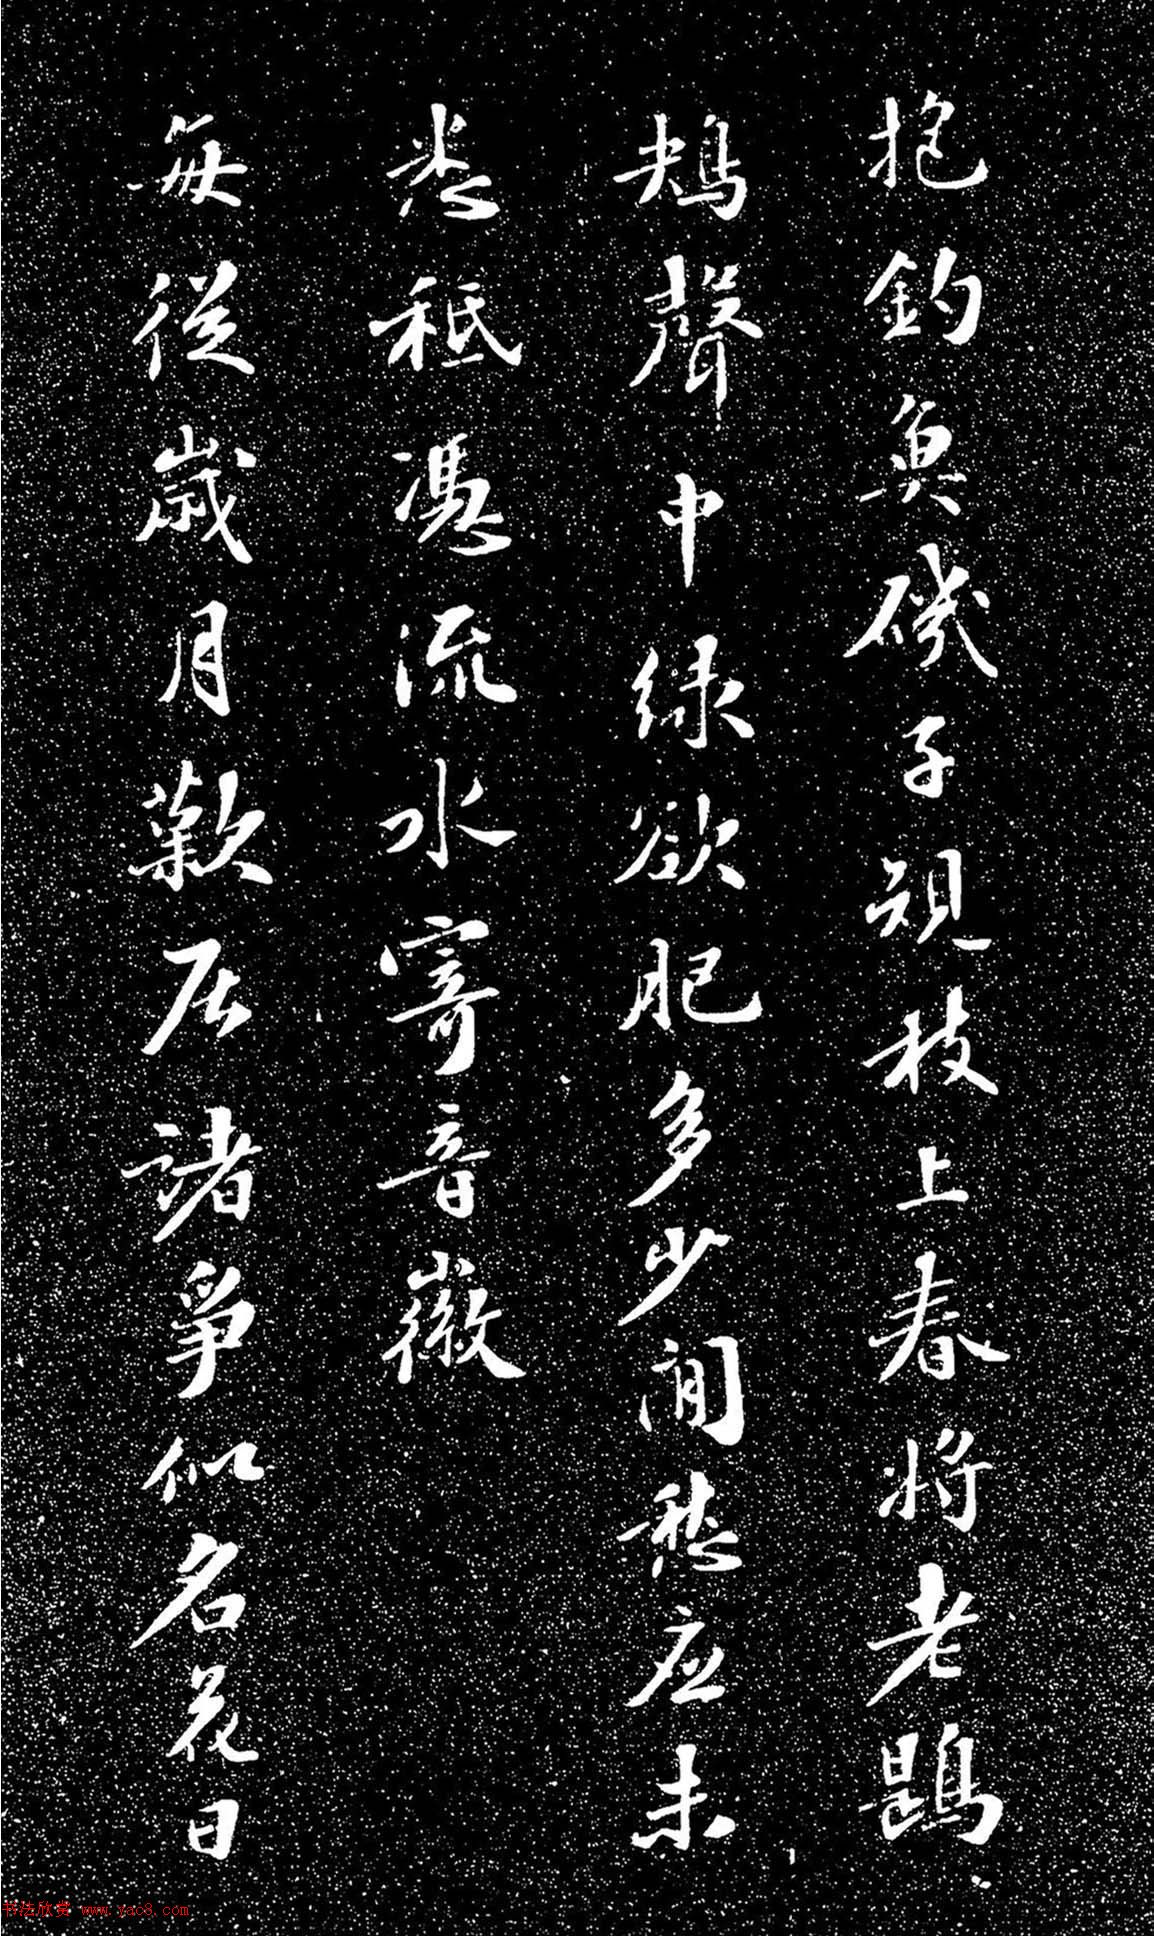 抱釣魚磯子規枝上春將老鶗
鴂聲中緑欲肥多少閒愁应未
悉秪憑流水寄音徽
每從歲月歎居諸爭似名花日
书法欣赏 www.yac8.com